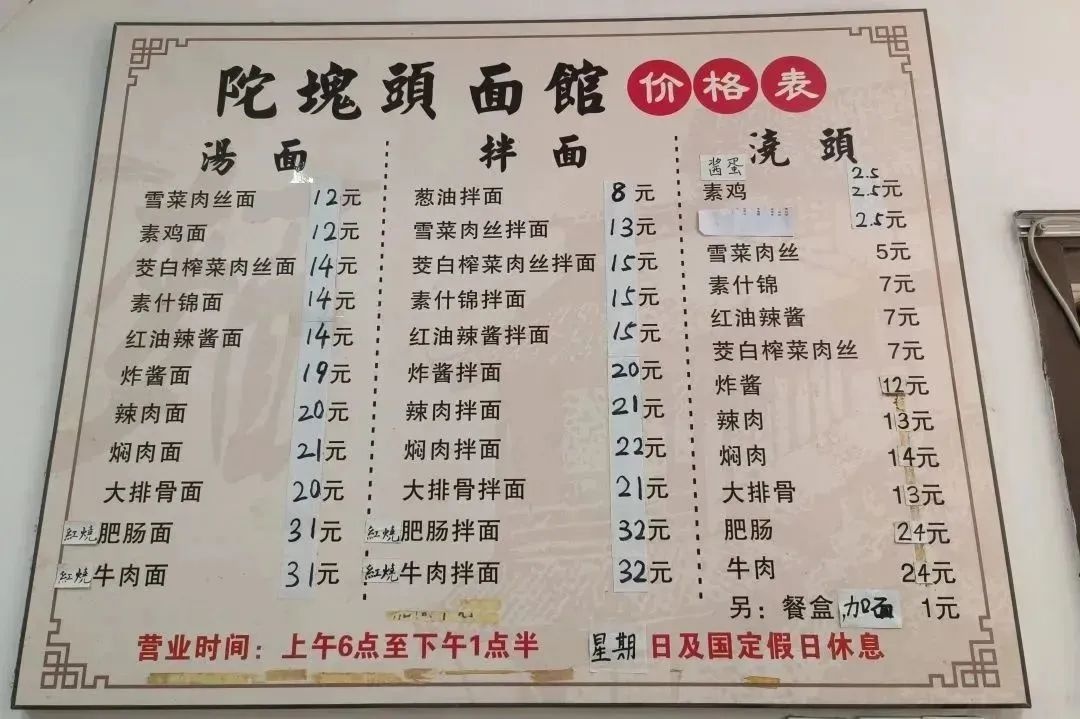 陀塊頭面館 价格表
湯面
雪菜肉丝面 12元
素鸡面 12元
茭白榨菜肉丝面 14元
素什锦面 14元
红油辣酱面 14元
炸酱面 19元
辣肉面 20元
焖肉面 21元
大排骨面 20元
紅燒肥肠面 31元
紅燒牛肉面 31元
拌面
葱油拌面 8元
雪菜肉丝拌面 13元
茭白榨菜肉丝拌面 15元
素什锦拌面 15元
红油辣酱拌面 15元
炸酱拌面 20元
辣肉拌面 21元
焖肉拌面 22元
大排骨拌面 21元
紅燒肥肠拌面 32元
紅燒牛肉拌面 32元
浇頭
酱蛋 2.5
素鸡 2.5元
2.5元
雪菜肉丝 5元
素什锦 7元
红油辣酱 7元
茭白榨菜肉丝 7元
炸酱 12元
辣肉 13元
焖肉 14元
大排骨 13元
肥肠 24元
牛肉 24元
另：餐盒加面 1元
营业时间：上午6点至下午1点半 星期日及国定假日休息